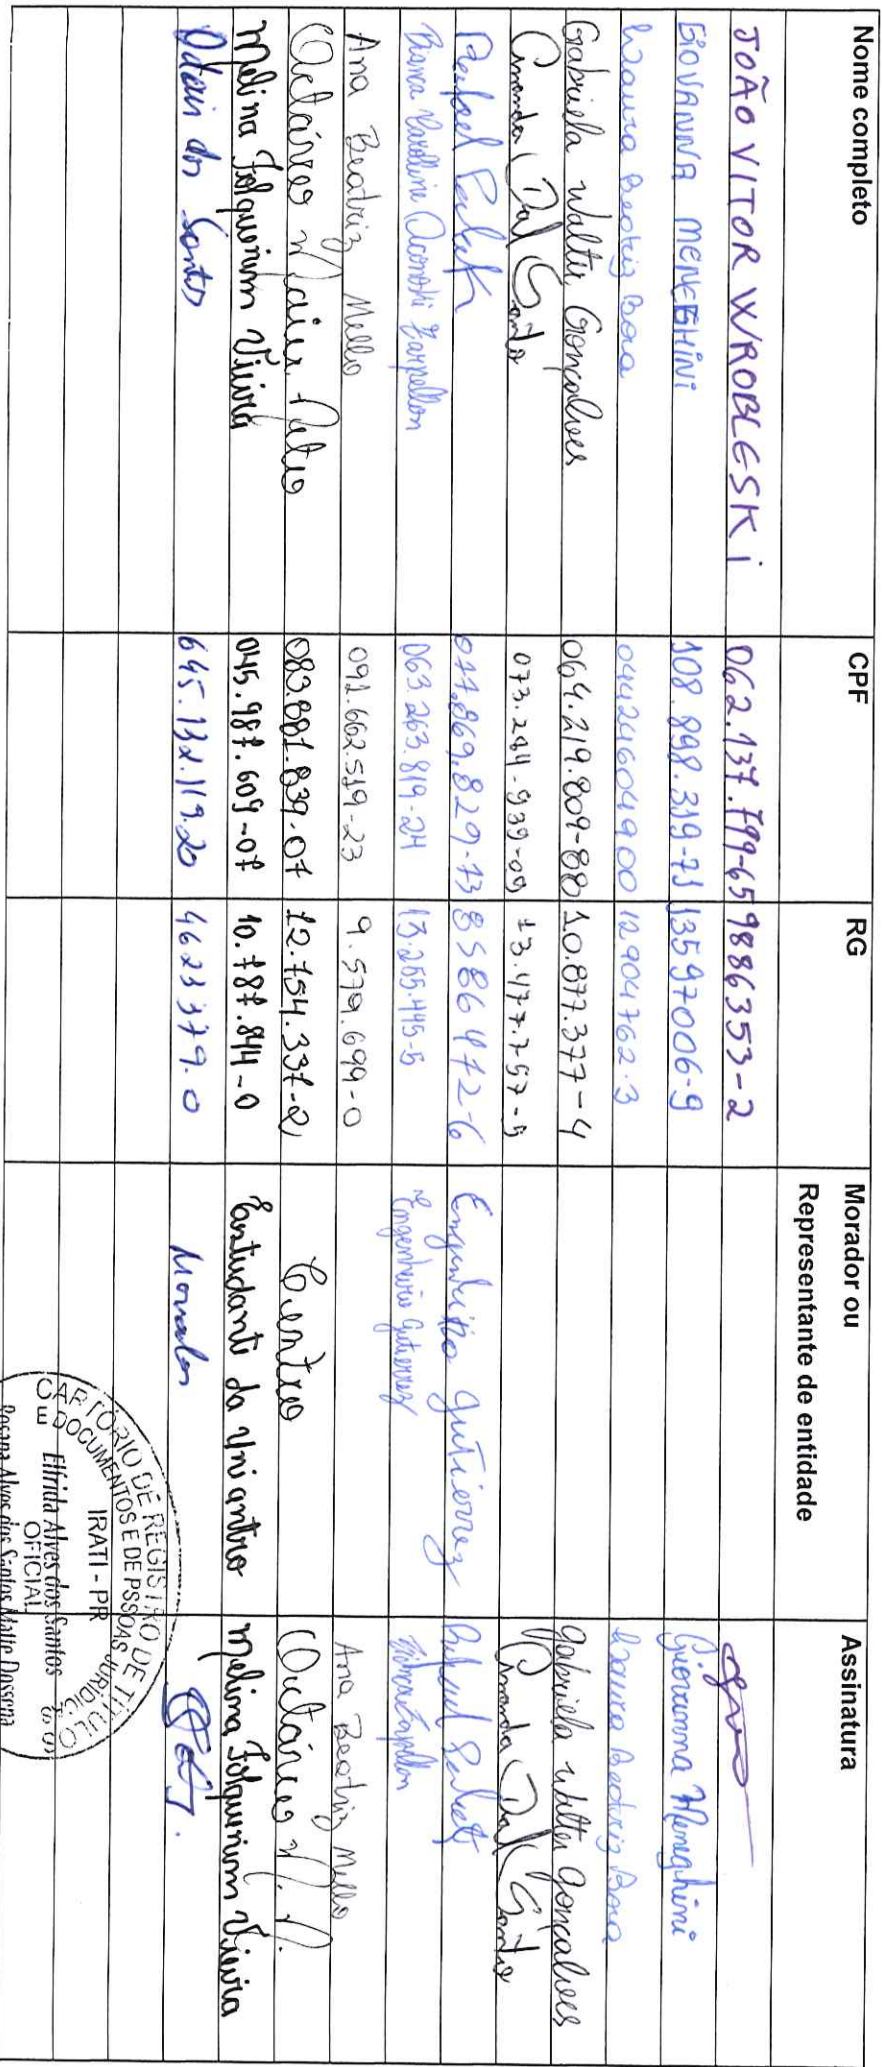 Nome completo CPF RG Morador ou Representante de entidade Assinatura
JOÃO VITOR WROBLESKI 062.137.799-65 9886353-2
GIOVANNA MENEGHINI 108.898.319-71 13597006-9 Giovanna Meneghini
Beatriz 04424604900 12904762.3 Beatriz
Gabriela Walter Gonçalves 064.219.809-88 10.877.377-4 Gabriela Walter Gonçalves
Amanda Dal Santo 073.244-939-09 13.477.757-5 Amanda Dal Santo
Rafael 077.869.829-73 8586472-6 Engenheiro Gutierrez Rafael
Bianca Karoline Zarpellon 063.263.819-24 13.255.445-5 Engenheiro Gutierrez Bianca Zarpellon
Ana Beatriz Mello 091.662.519-23 9.579.699-0 Ana Beatriz Mello
Octávio 083.881.839-07 12.754.337-2 Centro Octávio
Melina Folquenim Vieira 045.987.609-07 10.787.844-0 Estudante da Unicentro Melina Folquenim Vieira
Odair dos Santos 645.132.119.20 4623379.0 Morador
CARTÓRIO DE REGISTRO DE TÍTULO
E DOCUMENTOS E DE PSSOAS JURÍDIC
IRATI - PR
Elfrida Alves dos Santos
OFICIAL
Rosana Alves dos Santos Matte Dossena